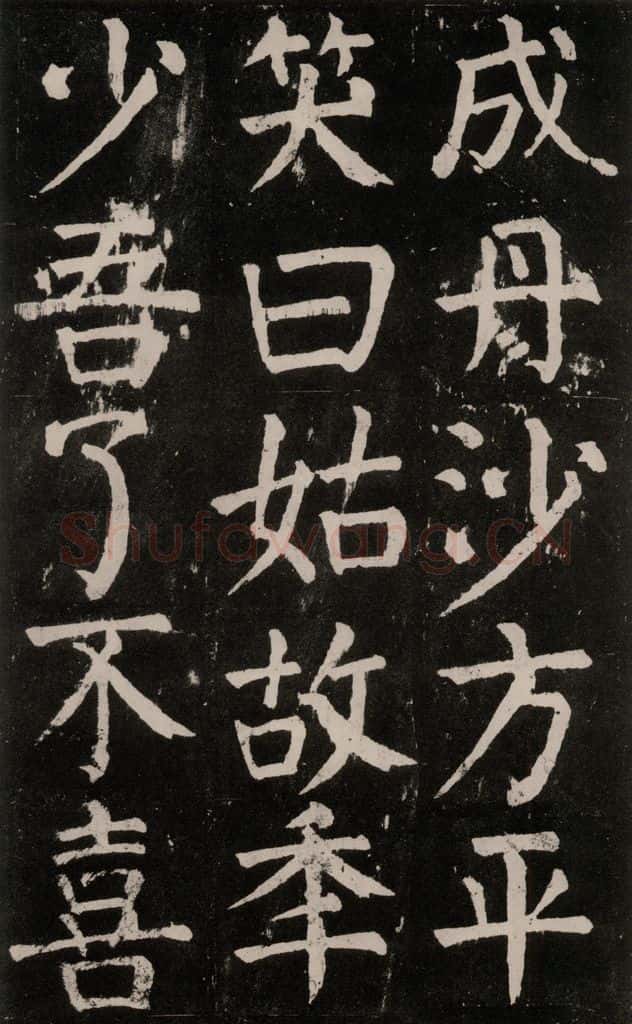 成丹沙方平
笑曰姑故年
少吾了不喜
Shufawang.CN